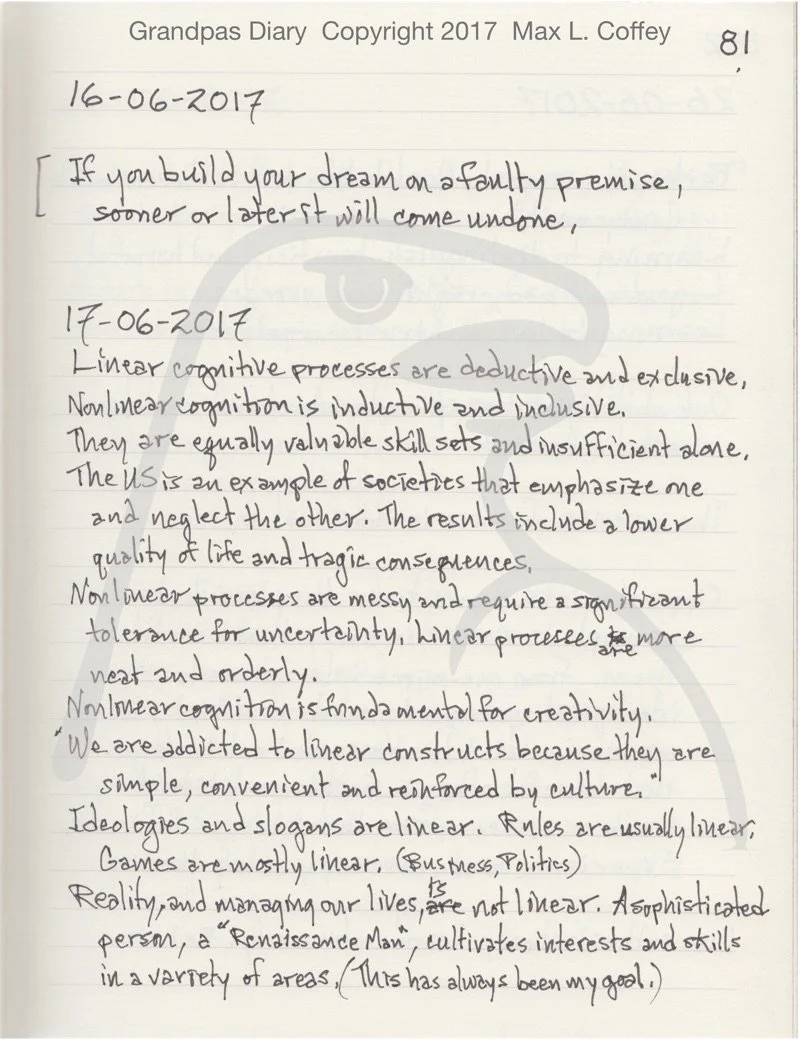 Grandpas Diary Copyright 2017 Max L. Coffey
81
16-06-2017
If you build your dream on a faulty premise,
sooner or later it will come undone.
17-06-2017
Linear cognitive processes are deductive and exclusive.
Nonlinear cognition is inductive and inclusive.
They are equally valuable skill sets and insufficient alone.
The US is an example of societies that emphasize one
and neglect the other. The results include a lower
quality of life and tragic consequences.
Nonlinear processes are messy and require a significant
tolerance for uncertainty. Linear processes are more
neat and orderly.
Nonlinear cognition is fundamental for creativity.
"We are addicted to linear constructs because they are
simple, convenient and reinforced by culture."
Ideologies and slogans are linear. Rules are usually linear.
Games are mostly linear. (Business, Politics)
Reality, and managing our lives, is not linear. A sophisticated
person, a "Renaissance Man", cultivates interests and skills
in a variety of areas. (This has always been my goal.)